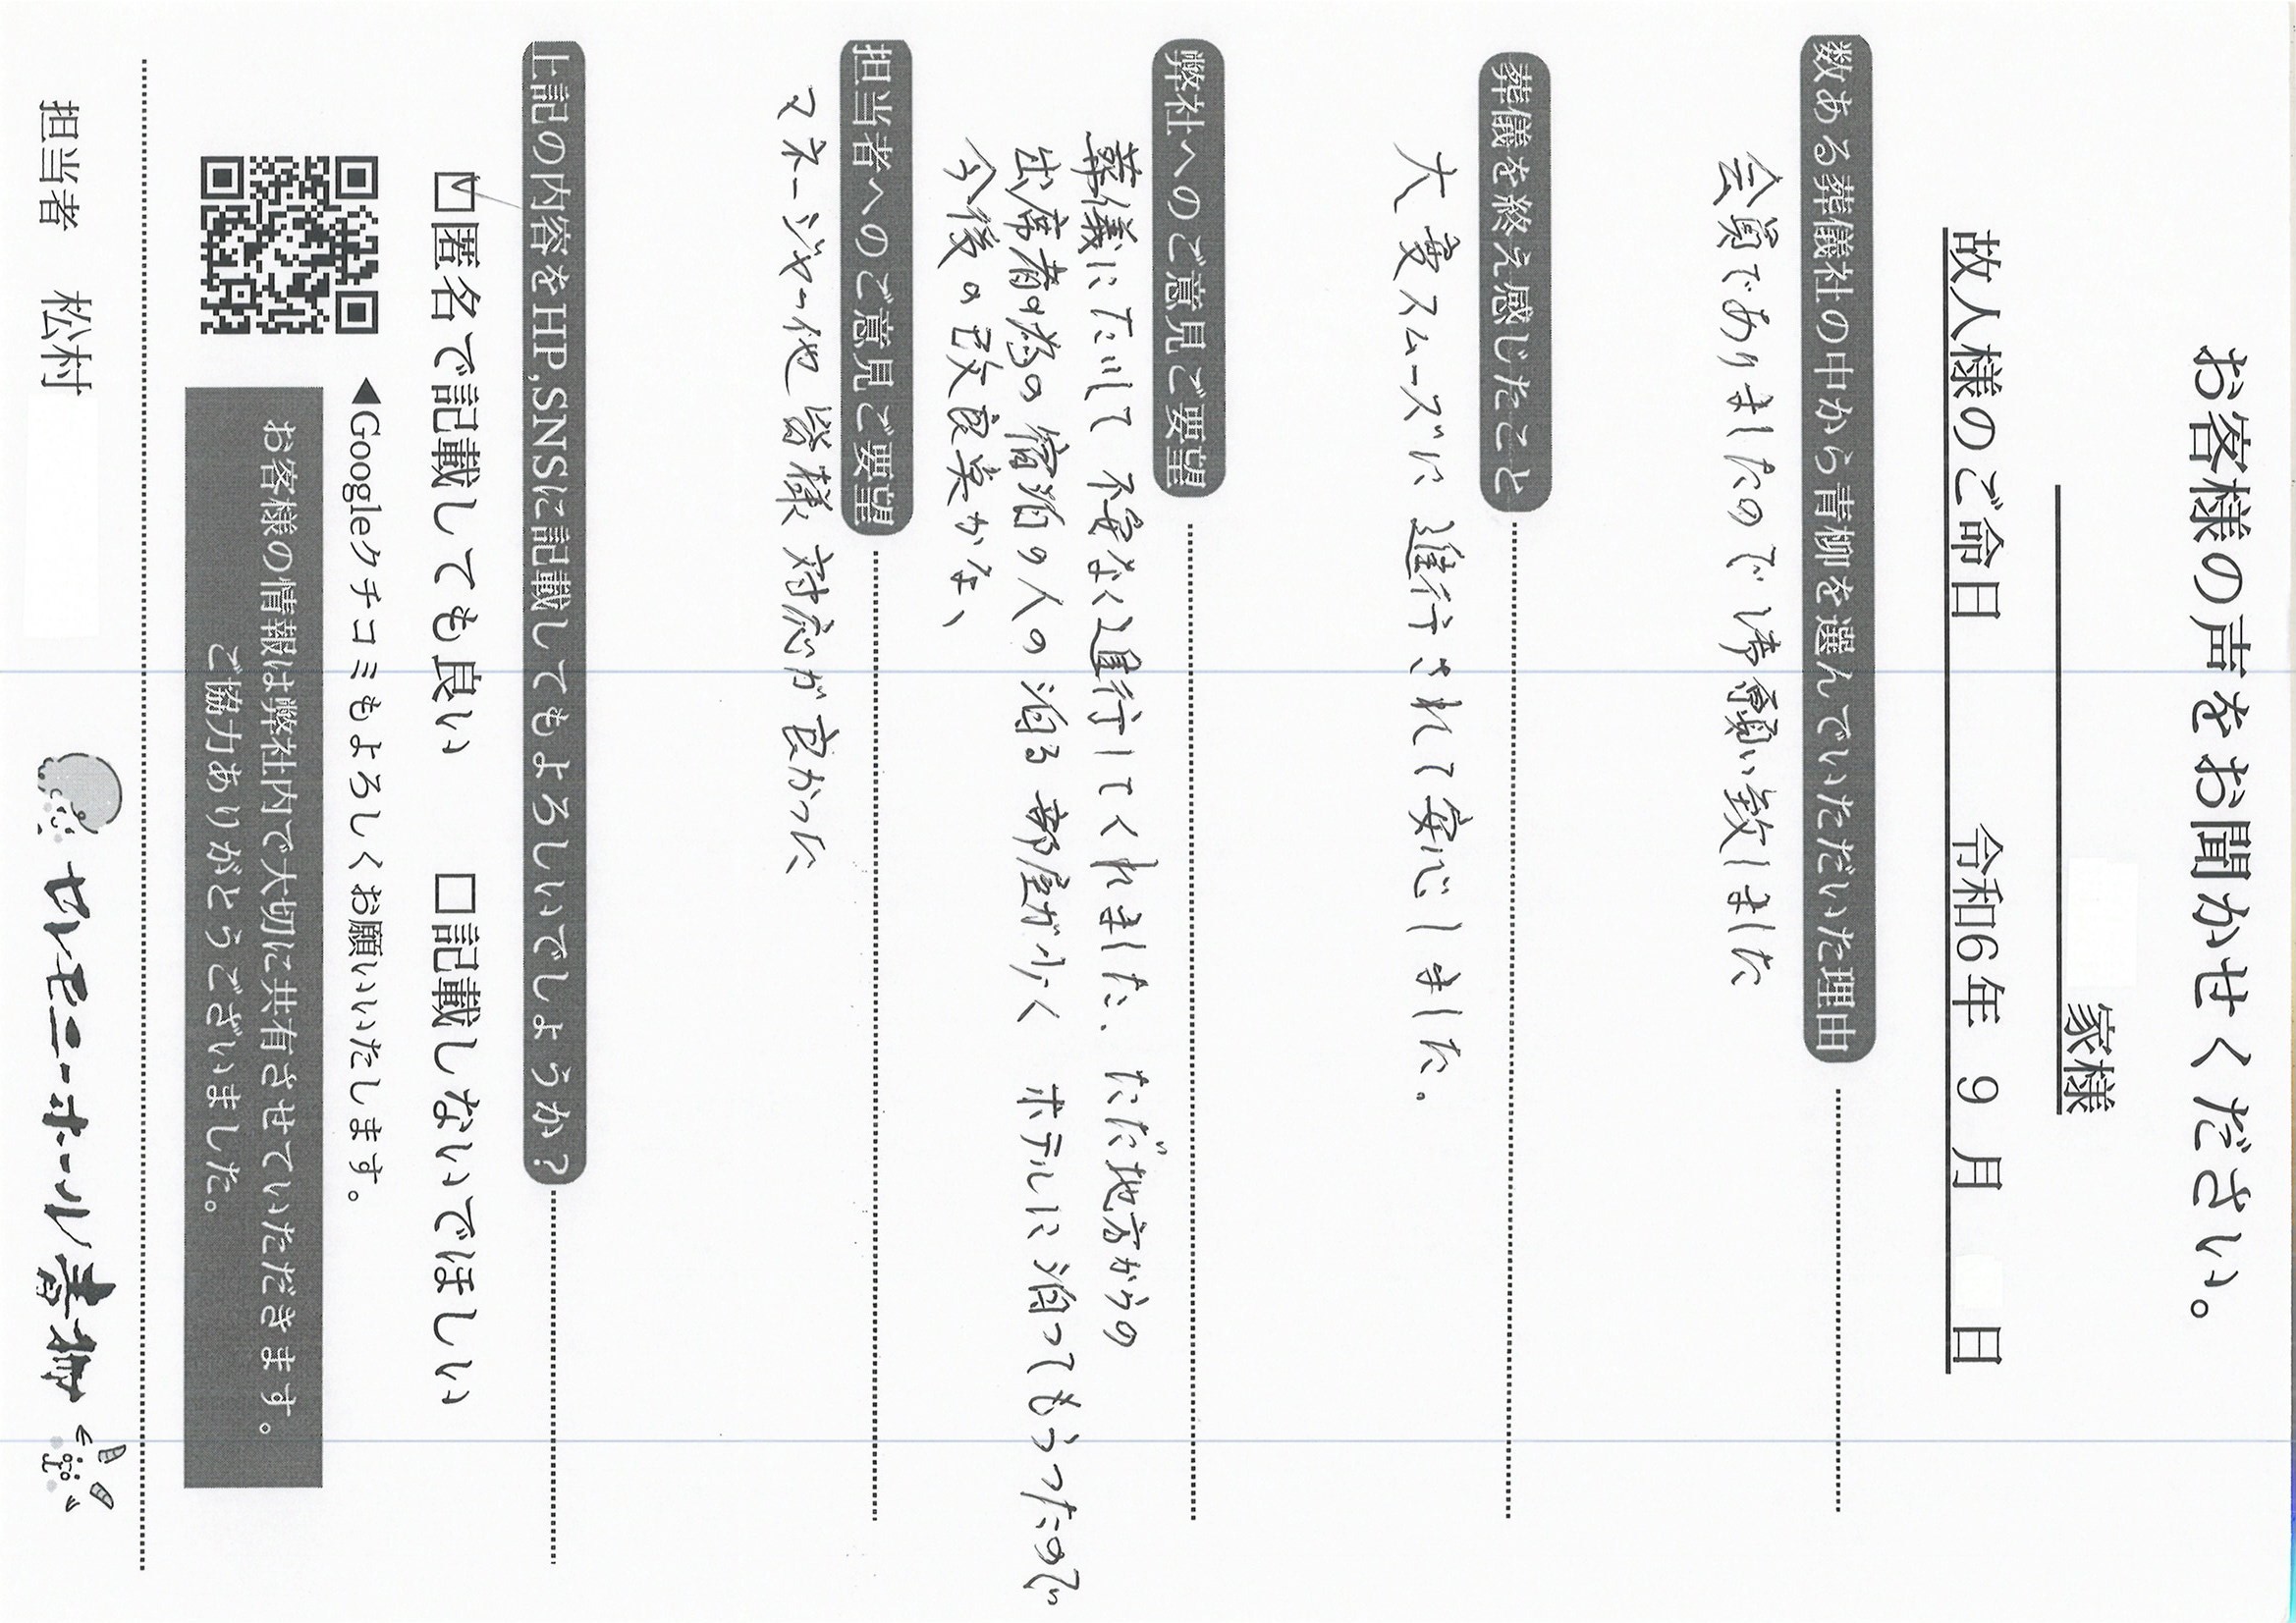 お客様の声をお聞かせください。
家様
故人様のご命日 令和6年 9 月 日
数ある葬儀社の中から青柳を選んでいただいた理由
会員でありましたので御願い致しました
葬儀を終え感じたこと
大変スムーズに進行されて安心しました。
弊社へのご意見ご要望
葬儀にたいして不安なく進行してくれました、ただ地方からの
出席者の為の宿泊の人の泊る部屋が少く ホテルに泊ってもらったので
今後の改良実かな、
担当者へのご意見ご要望
マネージャー他皆様対応が良かった
上記の内容をHP,SNSに記載してもよろしいでしょうか?
☑匿名で記載しても良い □記載しないでほしい
◀Googleクチコミもよろしくお願いいたします。
お客様の情報は弊社内で大切に共有させていただきます。
ご協力ありがとうございました。
担当者 松村
セレモニーホール青柳